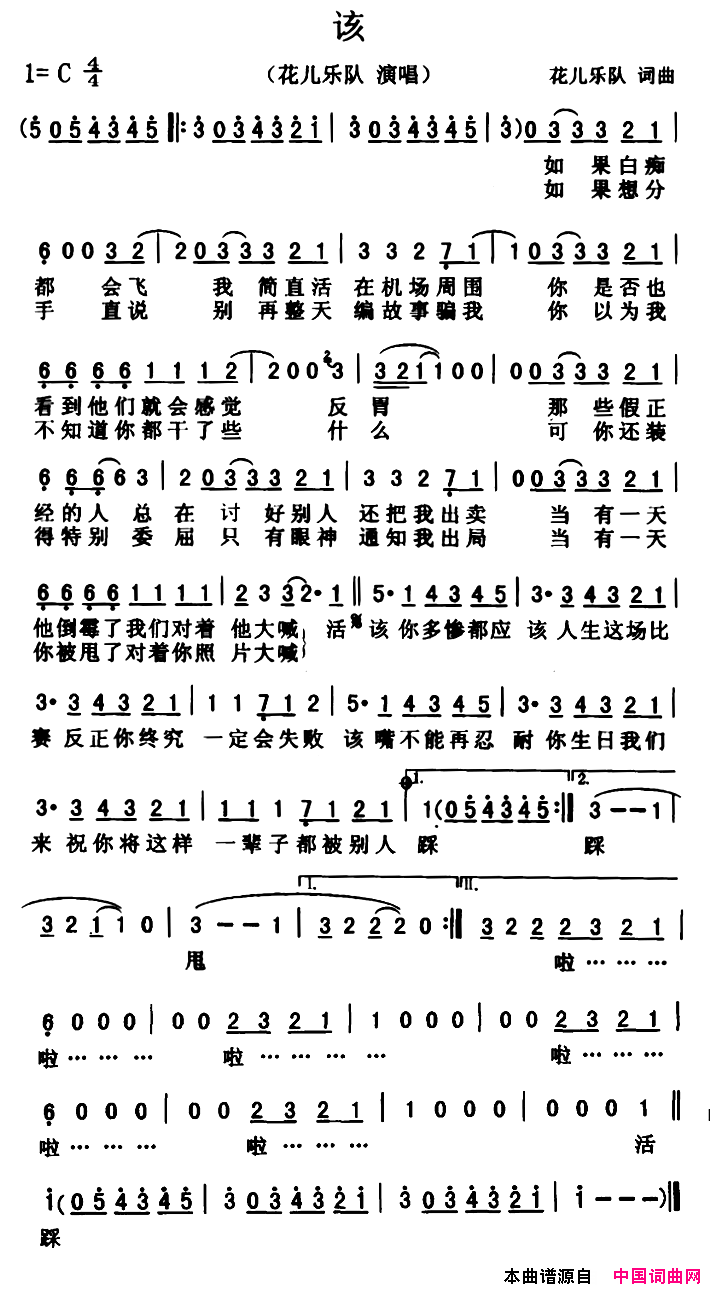 该
1= C 4/4 （花儿乐队 演唱） 花儿乐队 词曲
(5 0 5 4 3 4 5 ‖: 3 0 3 4 3 2 1 | 3 0 3 4 3 4 5 | 3) 0 3 3 3 2 1 |
如 果白痴
如 果想分
6 0 0 3 2 | 2 0 3 3 3 2 1 | 3 3 2 7 1 | 1 0 3 3 3 2 1 |
都 会飞 我 简直活 在机场周围 你 是否也
手 直说 别 再整天 编故事骗我 你 以为我
6 6 6 6 1 1 1 2 | 2 0 0 3 | 3 2 1 1 0 0 | 0 0 3 3 3 2 1 |
看到他们就会感觉 反 胃 那 些假正
不知道你都干了些 什 么 可 你还装
6 6 6 6 3 | 2 0 3 3 3 2 1 | 3 3 2 7 1 | 0 0 3 3 3 2 1 |
经的人 总 在 讨 好别人 还把我出卖 当 有一天
得特别 委 屈 只 有眼神 通知我出局 当 有一天
6 6 6 6 1 1 1 1 | 2 3 3 3 2· 1 ‖ 5· 1 4 3 4 5 | 3· 3 4 3 2 1 |
他倒霉了我们对着 他大喊 活 该 你多惨都应 该 人生这场比
你被甩了对着你照 片大喊
3· 3 4 3 2 1 | 1 1 7 1 2 | 5· 1 4 3 4 5 | 3· 3 4 3 2 1 |
赛 反正你终究 一定会失败 该 嘴不能再忍 耐 你生日我们
1. 2.
3· 3 4 3 2 1 | 1 1 1 7 1 2 1 | 1 (0 5 4 3 4 5 :‖ 3 - - 1 |
来 祝你将这样 一辈子都被别人 踩 踩
I. II.
3 2 1 1 0 | 3 - - 1 | 3 2 2 2 0 :‖ 3 2 2 2 3 2 1 |
甩 啦………
6 0 0 0 | 0 0 2 3 2 1 | 1 0 0 0 | 0 0 2 3 2 1 |
啦……… 啦………… 啦………
6 0 0 0 | 0 0 2 3 2 1 | 1 0 0 0 | 0 0 0 1 ‖
啦……… 啦……… 活
1 (0 5 4 3 4 5 | 3 0 3 4 3 2 1 | 3 0 3 4 3 2 1 | 1 - - -) ‖
踩
本曲谱源自 中国词曲网